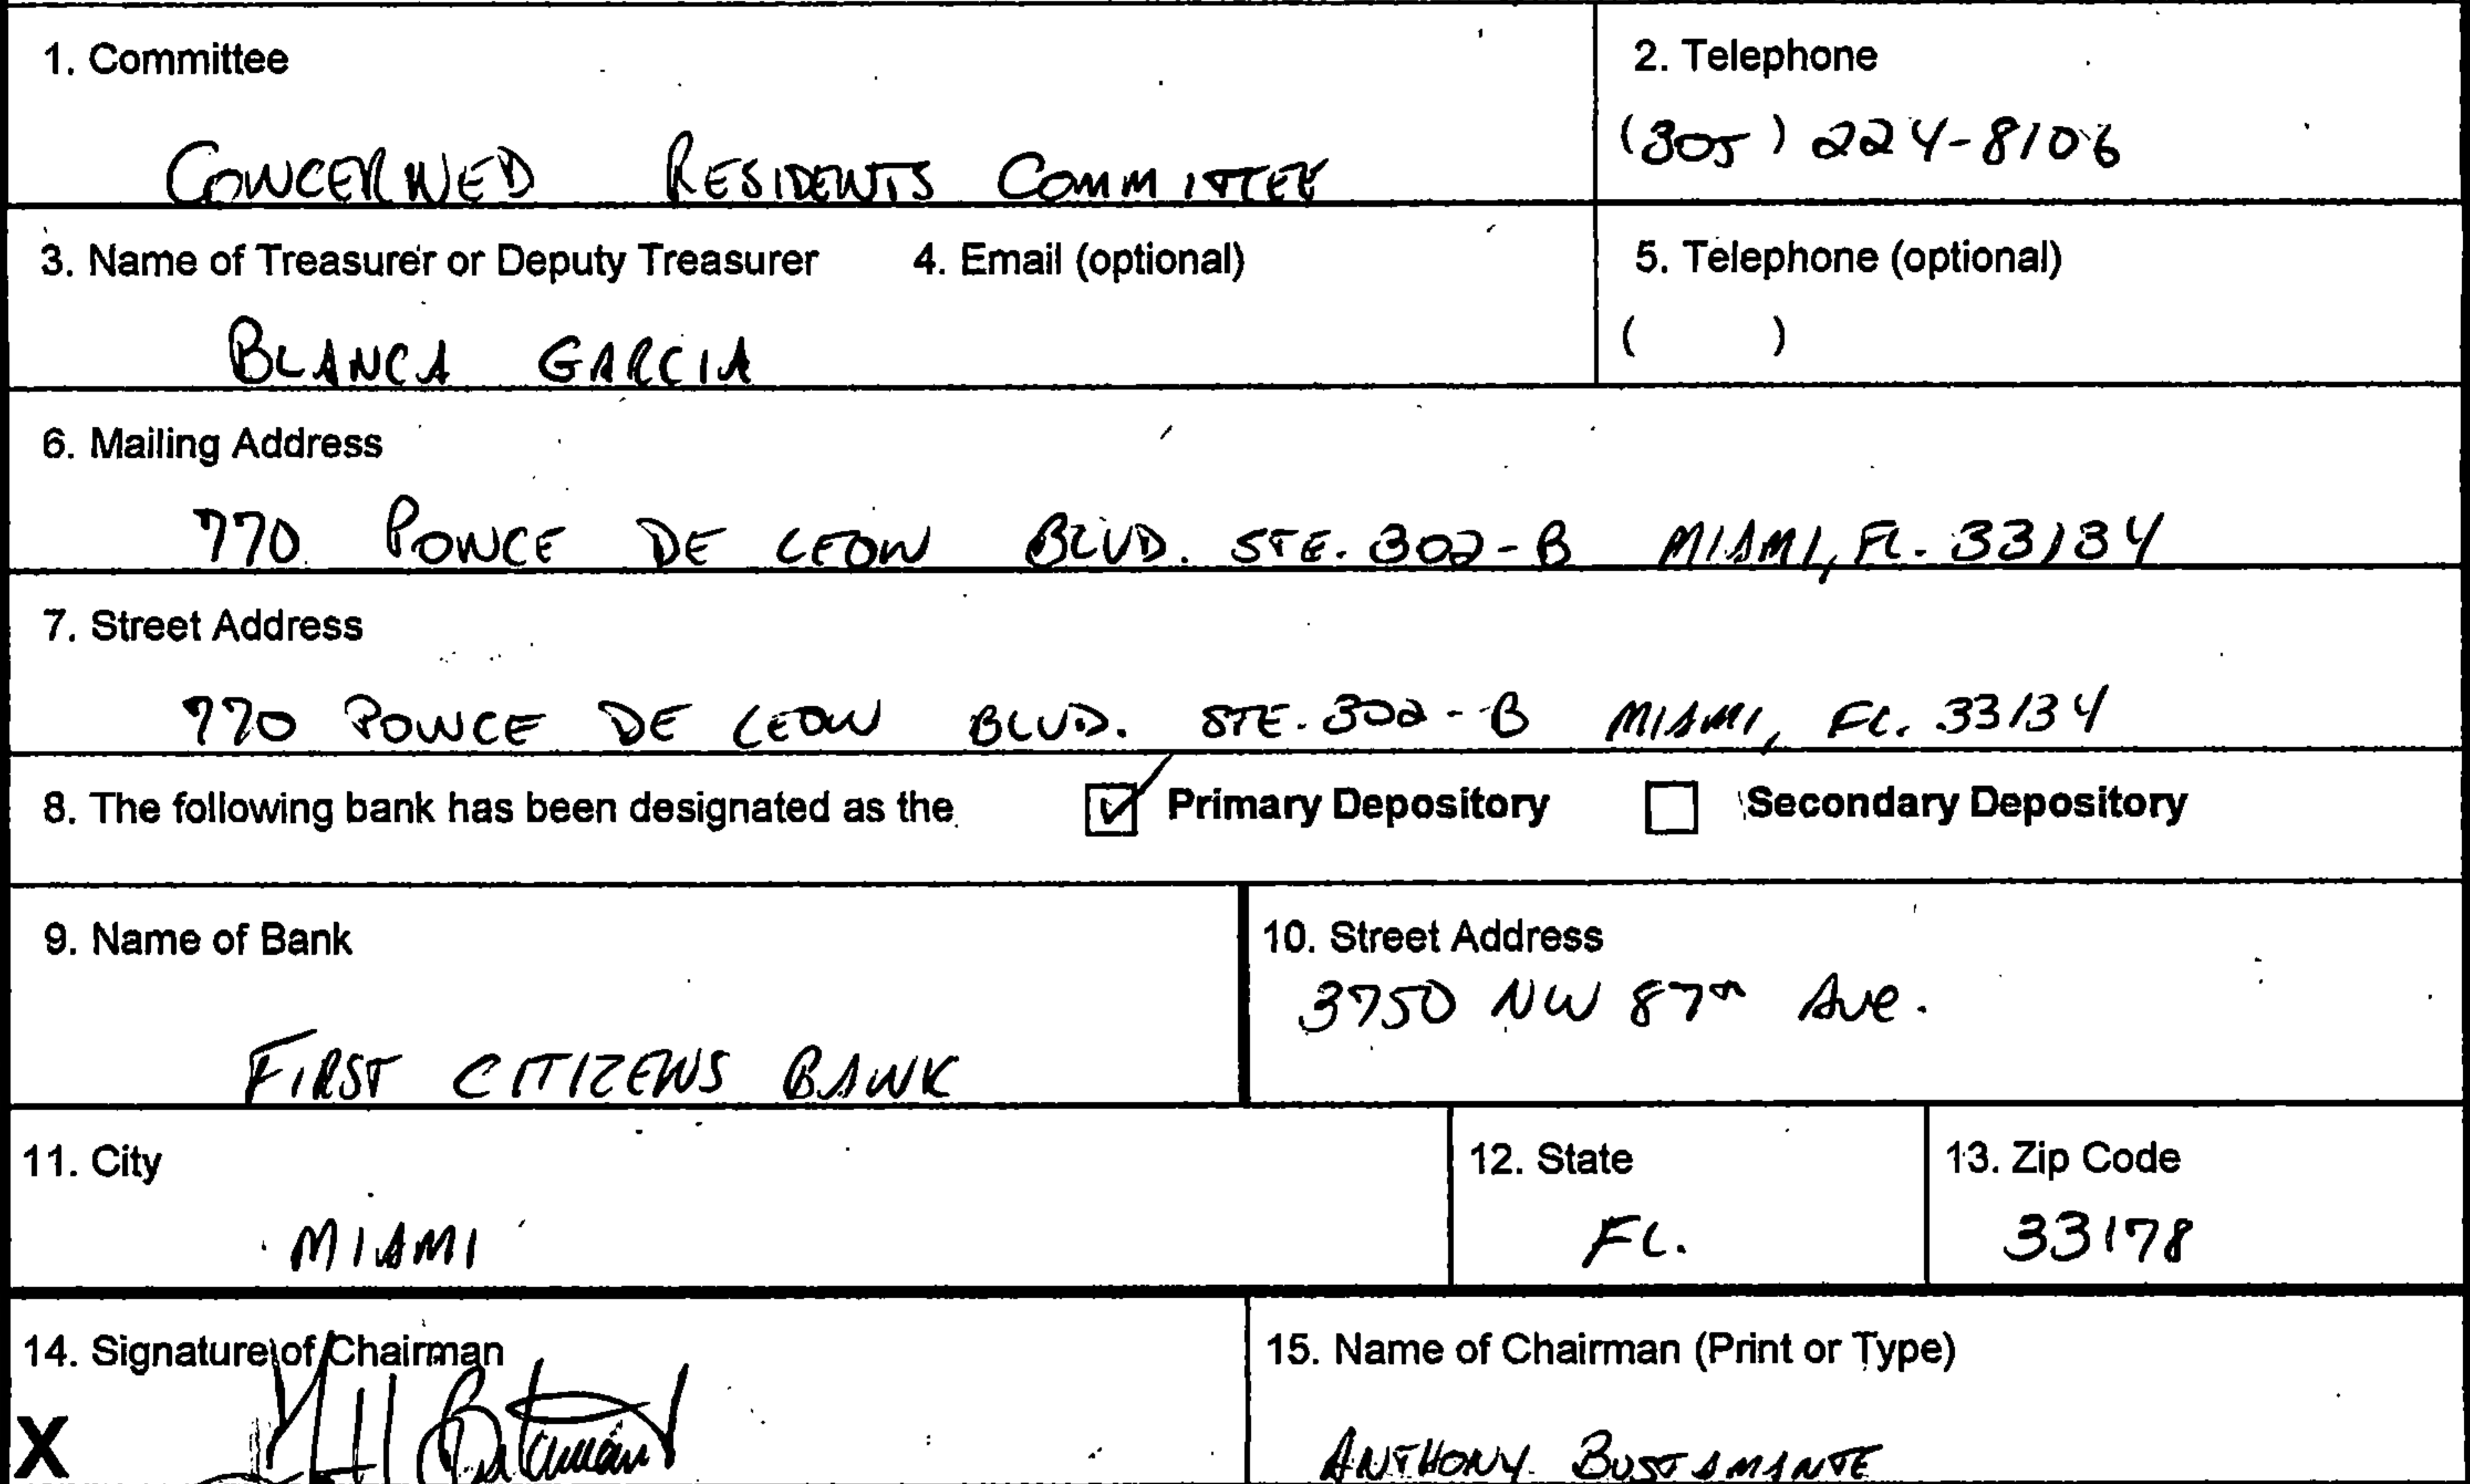 1. Committee
2. Telephone
CONCERNED RESIDENTS COMMITTEE
(305) 224-8106
3. Name of Treasurer or Deputy Treasurer 4. Email (optional)
5. Telephone (optional)
BLANCA GARCIA
( )
6. Mailing Address
770 PONCE DE LEON BLVD. STE. 302-B MIAMI, FL. 33134
7. Street Address
770 PONCE DE LEON BLVD. STE. 302-B MIAMI, FL. 33134
8. The following bank has been designated as the ☑ Primary Depository ☐ Secondary Depository
9. Name of Bank
10. Street Address
3750 NW 87th Ave.
FIRST CITIZENS BANK
11. City
12. State
13. Zip Code
MIAMI
FL.
33178
14. Signature of Chairman
15. Name of Chairman (Print or Type)
X
ANTHONY BUSTAMANTE